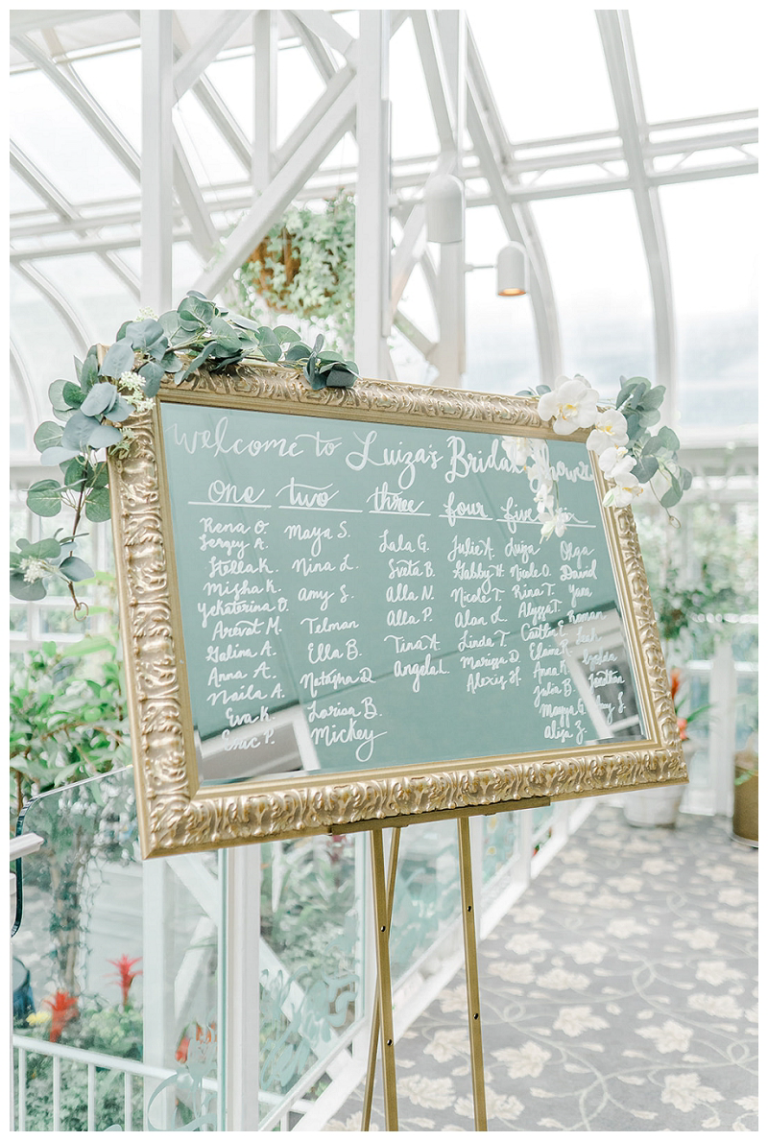 welcome to Luiza's Bridal Shower
one two three four five six
Rena O.
Sergey A.
Stella K.
Misha K.
Yekaterina D.
Aravat M.
Galina A.
Anna A.
Naila A.
Eva K.
Eric P.
Maya S.
Nina L.
Amy S.
Telman
Ella B.
Natasha D.
Larisa B.
Mickey
Lala G.
Sveta B.
Alla N.
Alla P.
Tina A.
Angela L.
Julie K.
Gabby H.
Nicole T.
Alan L.
Linda T.
Mariya D.
Alexis H.
Luiza
Nicole O.
Rina T.
Alyssa T.
Caitlin
Elaine
Anna K.
Julia B.
Maya G.
Alex Z.
Olga
David
Yana
Roman